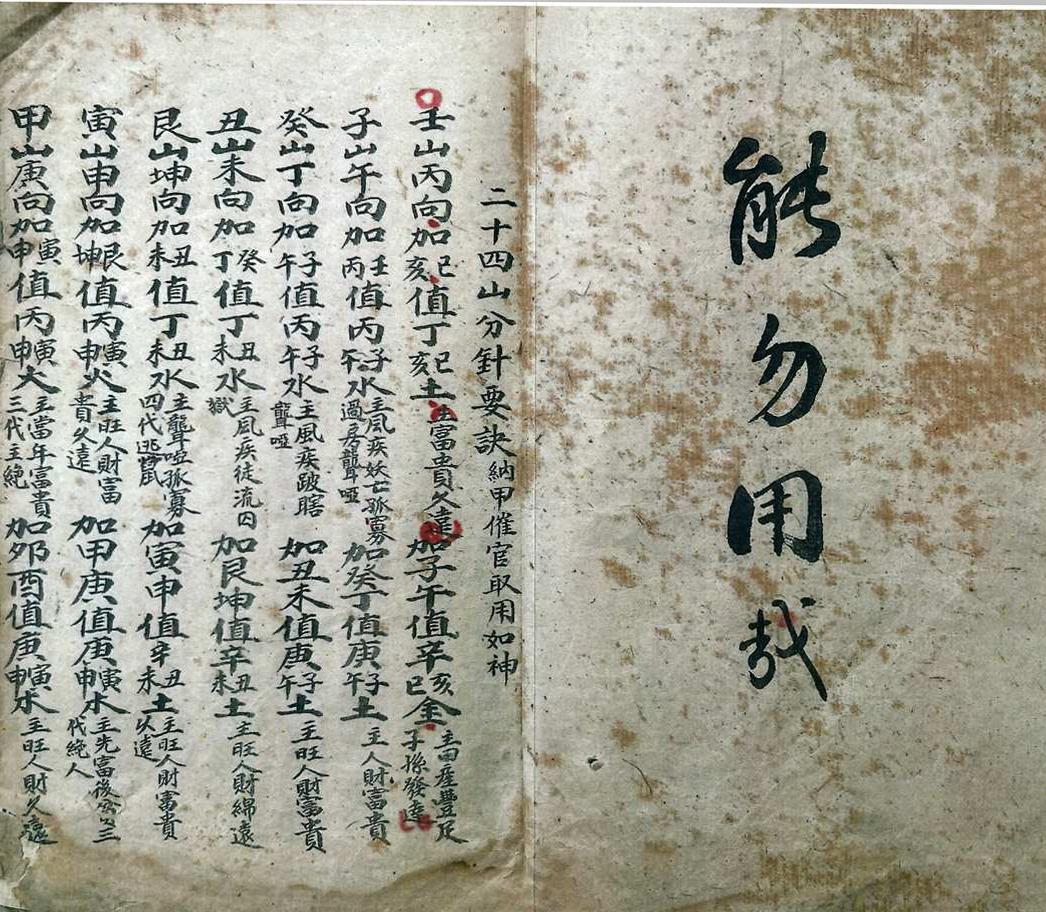 能勿用哉
二十四山分針要訣納甲催官取用如神
壬山丙向加巳亥值丁巳亥土主富貴久遠加子午值辛亥巳金主田產豐足子孫發達
子山午向加壬丙值丙子午水主風疾妖亡孤寡過房聾啞加癸丁值庚子午土主人財富貴
癸山丁向加子午值丙子午水主風疾跛瞎聾啞加丑未值庚子午土主旺人財富貴
丑山未向加癸丁值丁丑未水主風疾徒流囚獄加艮坤值辛丑未土主旺人財綿遠
艮山坤向加丑未值丁丑未水主聾啞孤寡四代逃竄加寅申值辛丑未土主旺人財富貴以遠
寅山申向加艮坤值丙寅申火主旺人財富貴久遠加甲庚值庚寅申木主先富後三代絕人
甲山庚向加寅申值丙寅申火主當年富貴三代主絕加卯酉值庚寅申木主旺人財久遠